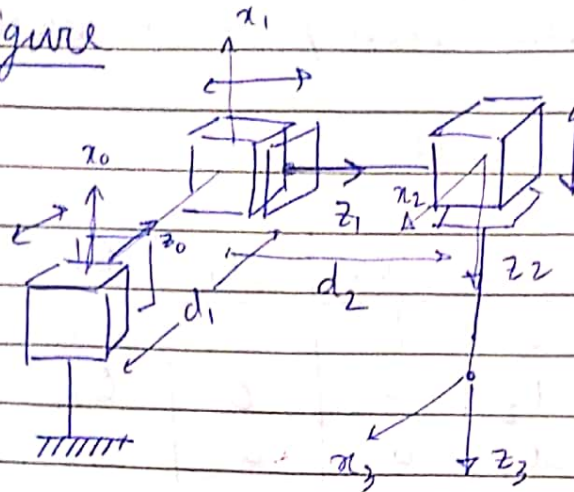 igure
x₁
x₀
z₀
x₂
z₁
z₂
d₁
d₂
x₃
z₃